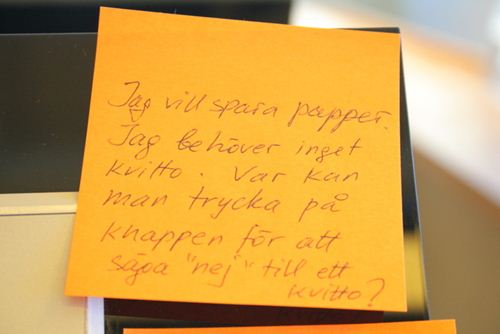 Jag vill spara papper.
Jag behöver inget
kvitto. Var kan
man trycka på
knappen för att
säga "nej" till ett
kvitto?